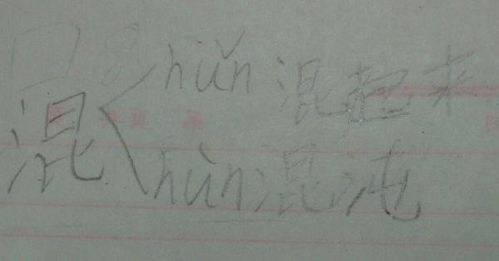 hǔn 混起来
混
hùn 混沌